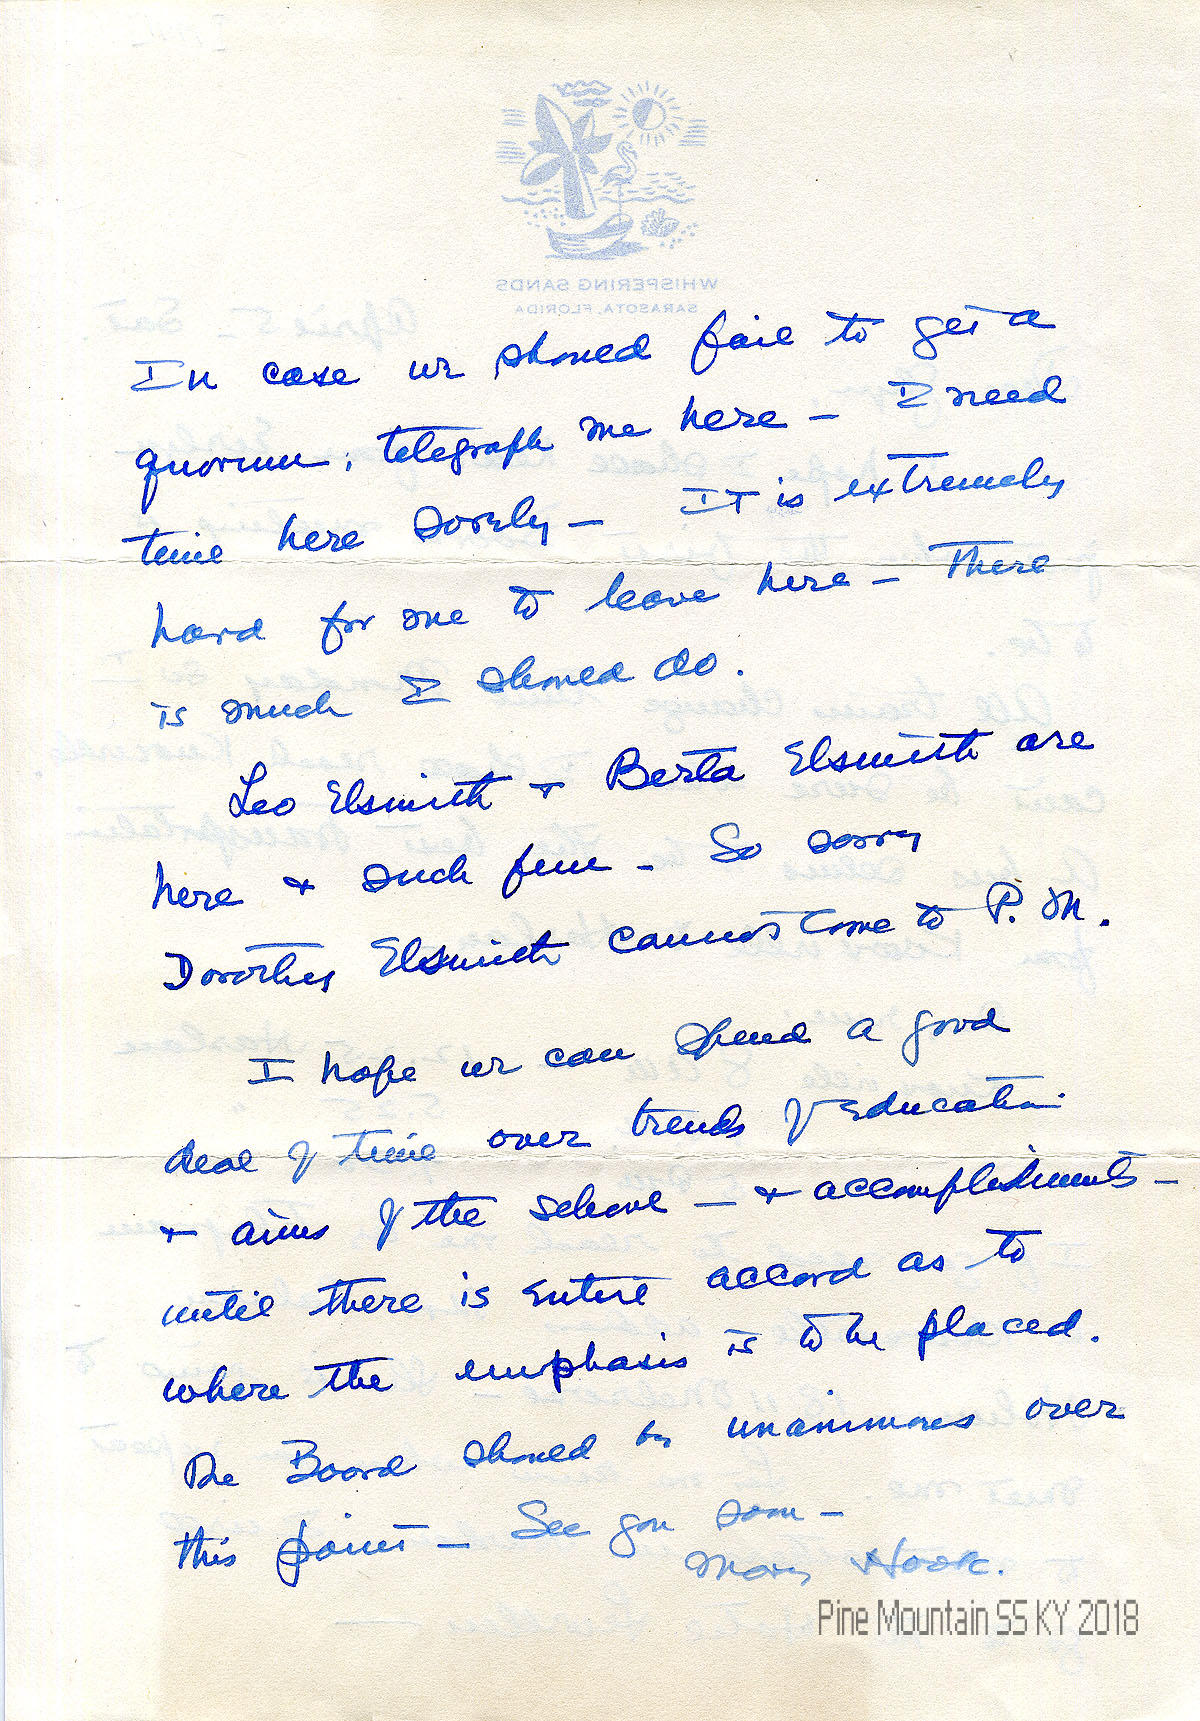 WHISPERING SANDS
SARASOTA, FLORIDA
In case we should fail to get a
quorum, telegraph me here — I need
time here sorely — It is extremely
hard for me to leave here — There
is much I should do.
Leo Elsmith + Berta Elsmith are
here + such fun — So sorry
Dorothy Elsmith cannot come to P. M.
I hope we can spend a good
deal of time over trends of education
+ aims of the school — + accomplishments —
until there is entire accord as to
where the emphasis is to be placed.
The Board should be unanimous over
this point — See you soon —
Mary Hook.
Pine Mountain SS KY 2018